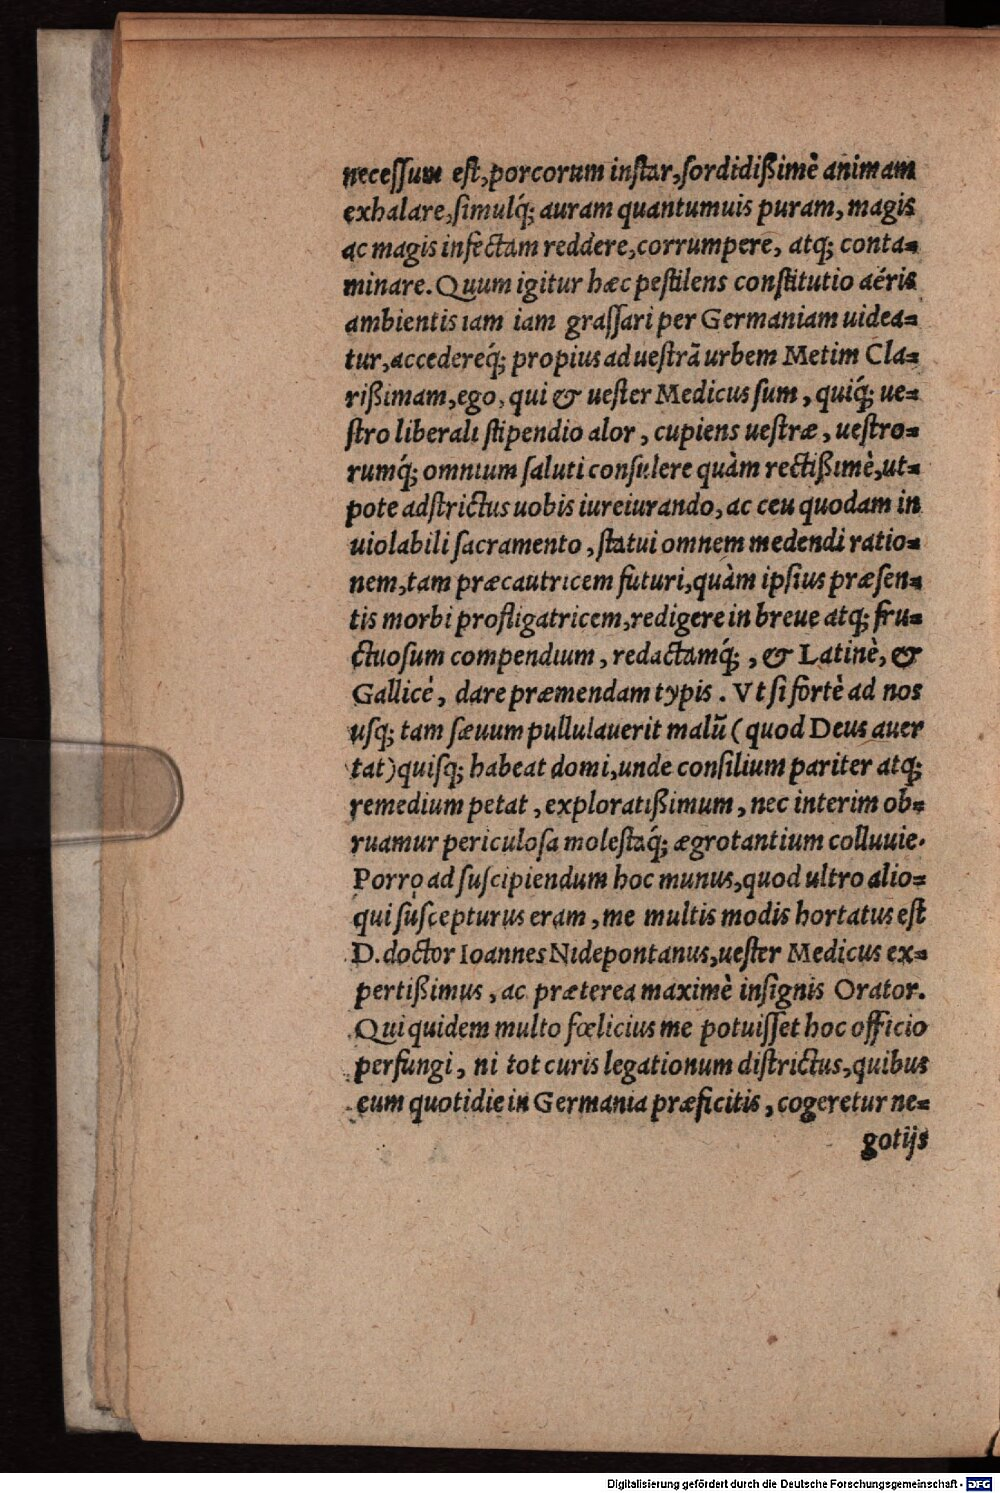 necessum est, porcorum instar, sordidißimè animam
exhalare, simulq́; auram quantumuis puram, magis
ac magis infectam reddere, corrumpere, atq; conta=
minare. Quum igitur hæc pestilens constitutio aéris
ambientis iam iam grassari per Germaniam uidea=
tur, accedereq́; propius ad uestrā urbem Metim Cla=
rißimam, ego, qui & uester Medicus sum, quiq́; ue=
stro liberali stipendio alor, cupiens uestræ, uestro=
rumq́; omnium saluti consulere quàm rectißimè, ut=
pote adstrictus uobis iureiurando, ac ceu quodam in
uiolabili sacramento, statui omnem medendi ratio=
nem, tam præcautricem futuri, quàm ipsius præsen=
tis morbi profligatricem, redigere in breue atq; fru=
ctuosum compendium, redactamq́;, & Latinè, &
Gallicè, dare præmendam typis. Vt si fortè ad nos
usq; tam sæuum pullulauerit malū (quod Deus auer
tat) quisq; habeat domi, unde consilium pariter atq;
remedium petat, exploratißimum, nec interim ob=
ruamur periculosa molestaq́; ægrotantium colluuie.
Porro ad suscipiendum hoc munus, quod ultro alio=
qui suscepturus eram, me multis modis hortatus est
D. doctor Ioannes Nidepontanus, uester Medicus ex=
pertißimus, ac præterea maximè insignis Orator.
Qui quidem multo fœlicius me potuisset hoc officio
perfungi, ni tot curis legationum districtus, quibus
eum quotidie in Germania præficitis, cogeretur ne=
gotijs
Digitalisierung gefördert durch die Deutsche Forschungsgemeinschaft - DFG